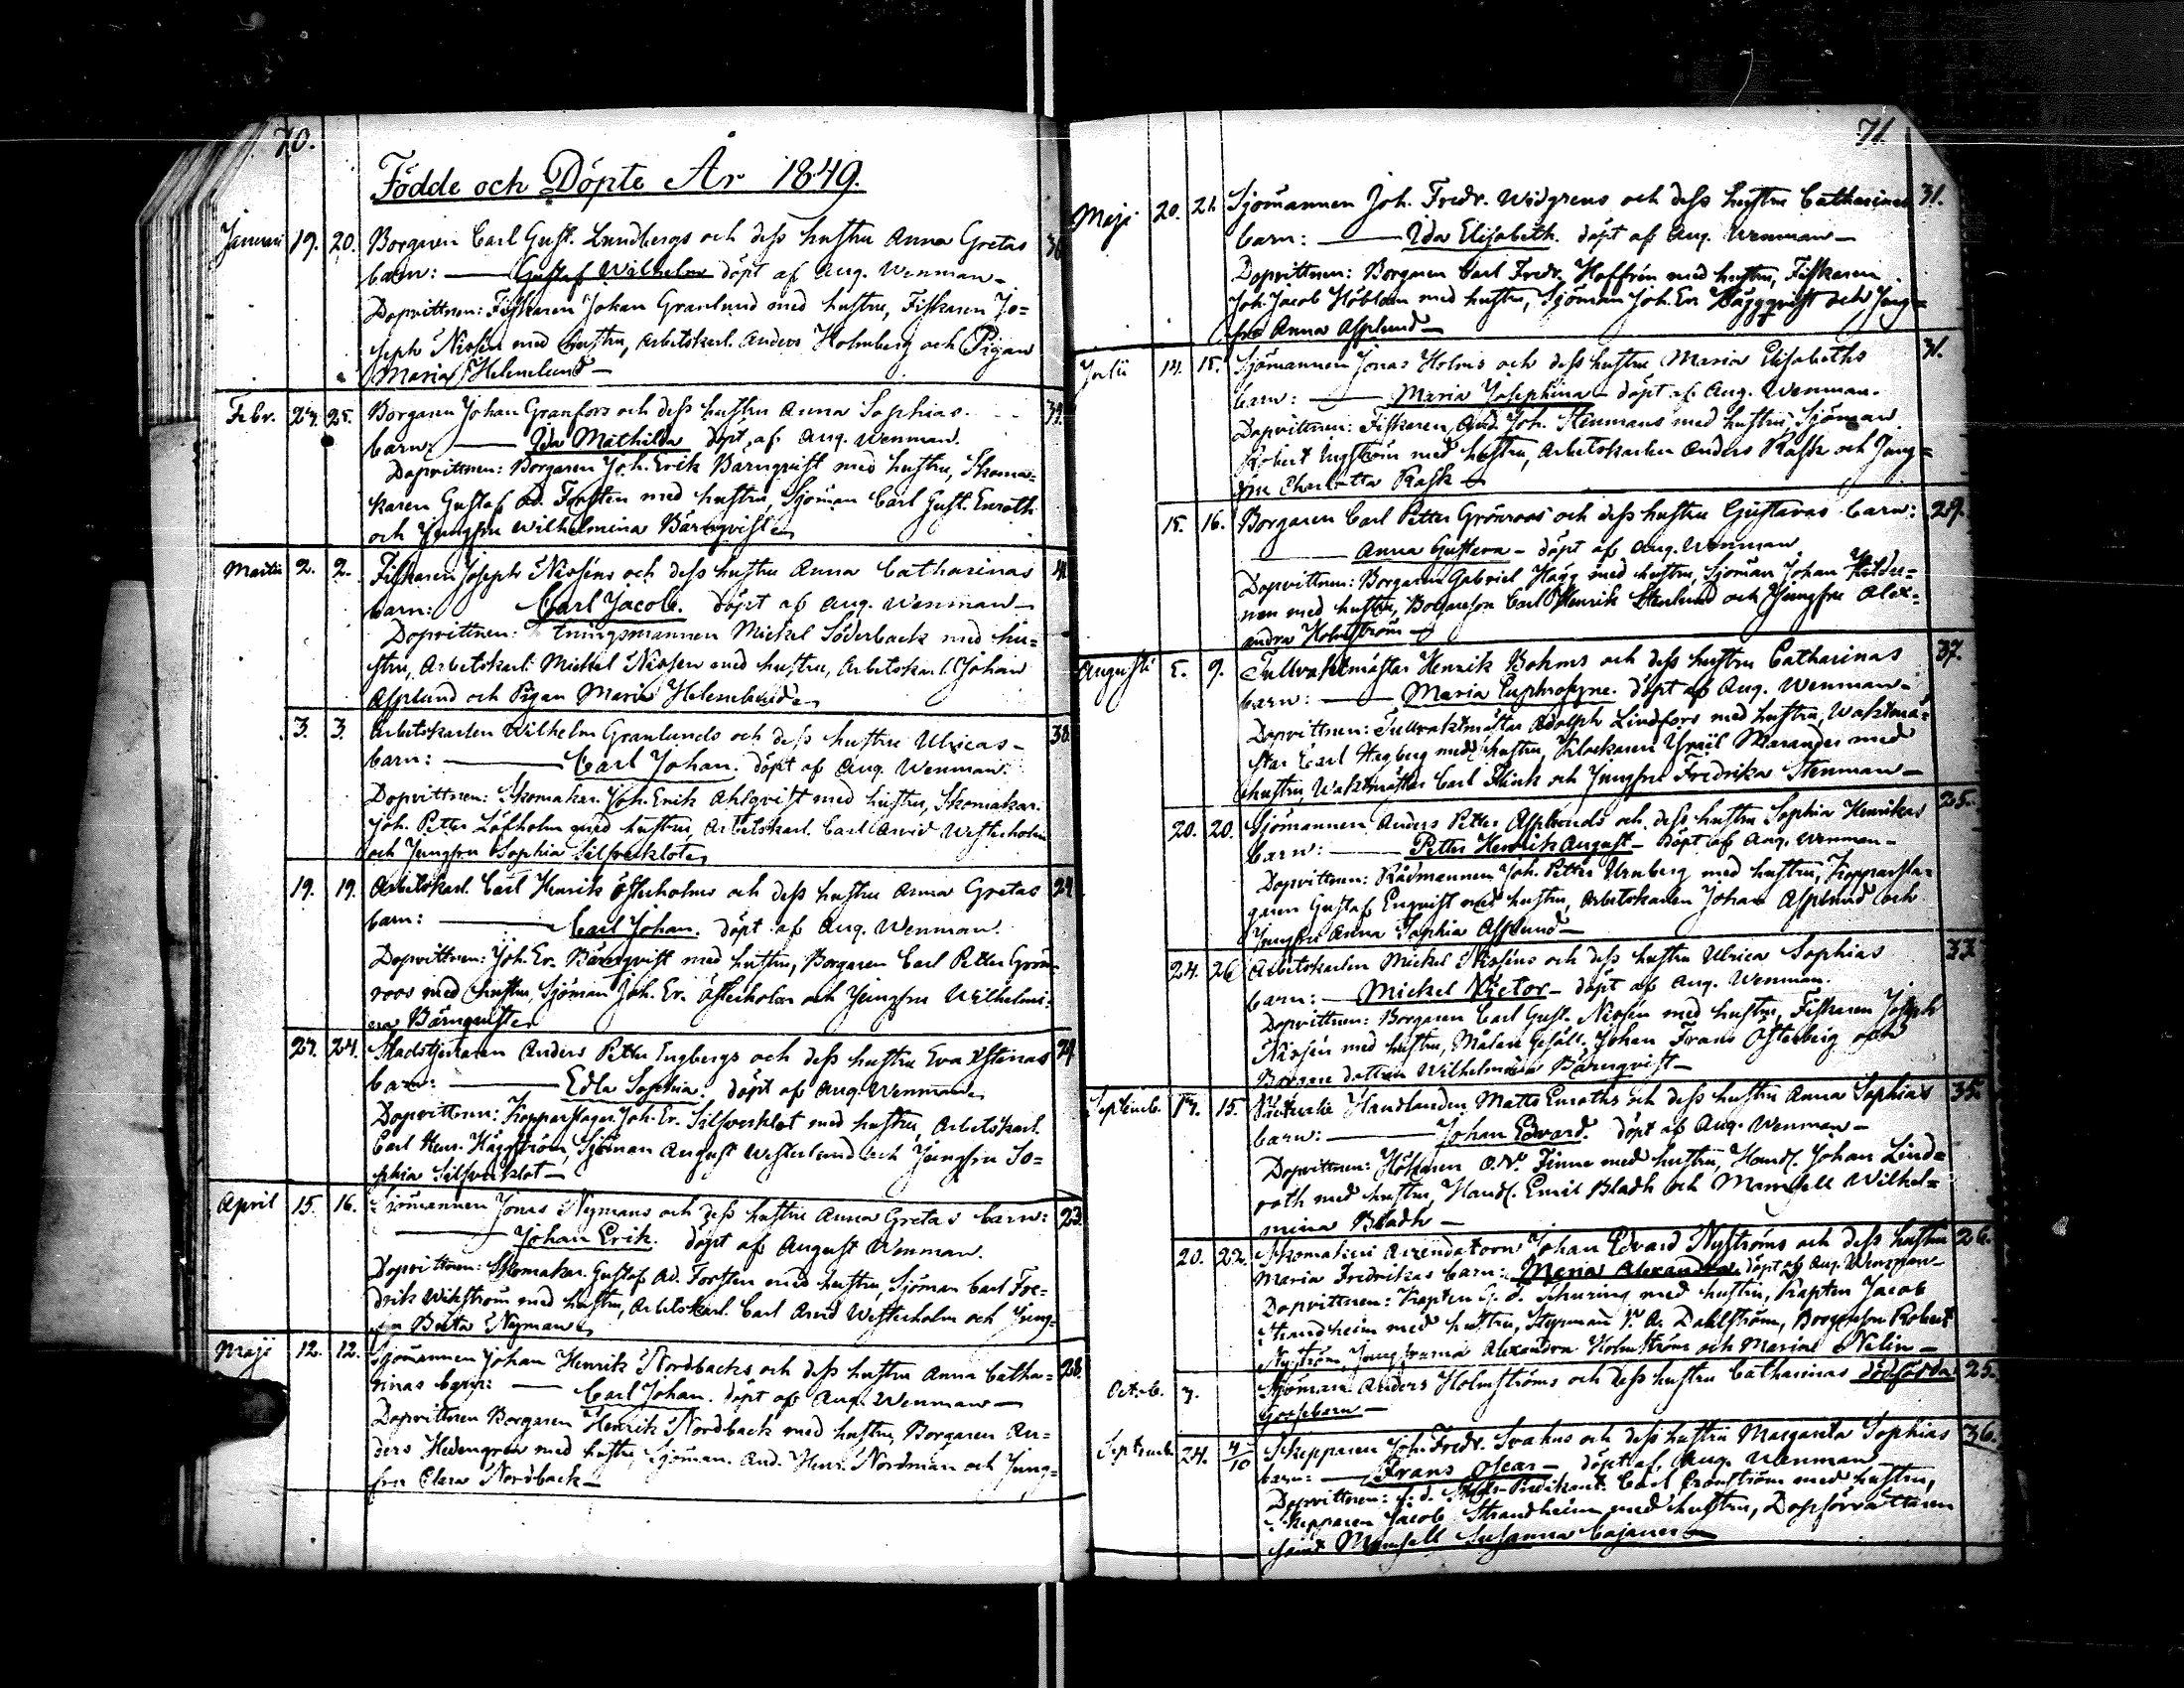 70.
Födde och Döpte År 1849.
Januari 19. 20. Borgaren Carl Gust. Lundbergs och dess hustru Anna Gretas
barn: — Gustaf Wilhelm döpt af Aug. Wenman —
Dopvittnen: Fiskaren Johan Granlund med hustru, Fiskaren Jo=
seph Nissén med hustru, Arbetskarl. Anders Holmberg och Pigan
Maria Helenelund —
Febr. 24. 25. Borgaren Johan Granfors och dess hustru Anna Sophias
barn: — Ida Mathilda döpt af Aug. Wenman.
Dopvittnen: Borgaren Joh. Erik Bärnqvist med hustru, Skoma=
karen Gustaf Ad. Forstén med hustru, Sjöman Carl Gust. Enroth
och Jungfru Wilhelmina Bärnqvist
Martii 2. 2. Fiskaren Joseph Nisséns och dess hustru Anna Catharinas
barn: Carl Jacob. döpt af Aug. Wenman —
Dopvittnen: Mickel Söderback med hu=
stru, Arbetskarl. Mickel Nissén med hustru, Arbetskarl. Johan
Asplund och Pigan Maria Helenelund
3. 3. Arbetskarlen Wilhelm Granlunds och dess hustru Ulricas — 30.
barn: — Carl Johan. döpt af Aug. Wenman.
Dopvittnen: Skomakar. Joh. Erik Ahlqvist med hustru, Skomakar.
Joh. Petter Löfholm med hustru, Arbetskarl. Carl Arvid Westerholm
och Jungfru Sophia Silfverklot
19. 19. Arbetskarl. Carl Henrik Österholms och dess hustru Anna Gretas 29.
barn: — Carl Johan. döpt af Aug. Wenman.
Dopvittnen: Joh. Er. Bärnqvist med hustru, Borgaren Carl Petter Grön=
roos med hustru, Sjöman Joh. Er. Österholm och Jungfru Wilhelmi=
na Bärnqvist
24. 24. Stadstjenaren Anders Petter Engbergs och dess hustru Eva Stinas 29.
barn: — Edla Sophia. döpt af Aug. Wenman
Dopvittnen: Kopparslagar. Joh. Er. Silfverklot med hustru, Arbetskarl.
Carl Henr. Häggström, Sjöman August Westerlund och Jungfru So=
phia Silfverklot —
April 15. 16. Sjömannen Jonas Nymans och dess hustru Anna Gretas barn: 23.
— Johan Erik. döpt af August Wenman.
Dopvittnen: Skomakar. Gustaf Ad. Forstén med hustru, Sjöman Carl Fre=
drik Wikström med hustru, Arbetskarl. Carl Arvid Westerholm och Jung=
fru Brita Nyman
Maji 12. 12. Sjömannen Johan Henrik Nordbacks och dess hustru Anna Catha= 28.
rinas barn: — Carl Johan. döpt af Aug. Wenman —
Dopvittnen Borgaren Henrik Nordback med hustru, Borgaren An=
ders Hedengren med hustru, Sjöman. And. Henr. Nordman och Jung=
fru Clara Nordback —
71.
Maji 20. 21. Sjömannen Joh. Fredr. Widgrens och dess hustru Catharinas 31.
barn: — Ida Elisabeth. döpt af Aug. Wenman —
Dopvittnen: Borgaren Carl Fredr. Hoffrén med hustru, Fiskaren
Joh. Jacob med hustru, Sjöman Joh. Er. Häggqvist och Jung=
fru Anna Asplund —
Julii 14. 15. Sjömannen Jonas Holms och dess hustru Maria Elisabeths 31.
barn: — Maria Josephina — döpt af Aug. Wenman.
Dopvittnen: Fiskaren And. Joh. Stenmans med hustru, Sjöman
Robert Engström med hustru, Arbetskarlen Anders Rask och Jung=
fru Charlotta Rask
15. 16. Borgaren Carl Petter Grönroos och dess hustru Gustavas barn: 29.
— Anna Gustava — döpt af Aug. Wenman
Dopvittnen: Borgaren Gabriel Hägg med hustru, Sjöman Johan
nen med hustru, Borgareson Carl Henrik Stenlund och Jungfru Alex=
andra Holmström —
Augusti 5. 9. Tullvaktmästar Henrik Bohms och dess hustru Catharinas 37.
barn: — Maria Euphrosyne. döpt af Aug. Wenman —
Dopvittnen: Tullvaktmästar Adolph Lindfors med hustru, Waktmä=
star Carl Hagberg med hustru, Klockaren Israël Marander med
hustru, Waktmästar Carl Flink och Jungfru Fredrika Stenman —
20. 20. Sjömannen Anders Petter Asplunds och dess hustru Sophia Henrikas 25.
barn: — Petter Henrik August — döpt af Aug. Wenman —
Dopvittnen: Rådmannen Joh. Petter Urnberg med hustru, Kopparsla=
garen Gustaf Enqvist med hustru, Arbetskarlen Johan Asplund och
Jungfru Anna Sophia Asplund —
24. 26. Arbetskarlen Mickel Nisséns och dess hustru Ulrica Sophias 33.
barn: — Mickel Victor — döpt af Aug. Wenman.
Dopvittnen: Borgaren Carl Gust. Nissén med hustru, Fiskaren Joseph
Nissén med hustru, Målare Gesäll. Johan Frans Österberg och
Borgare dottren Wilhelmina Bärnqvist —
Septemb. 14. 15. Handlanden Matts Enroths och dess hustru Anna Sophias 35.
barn: — Johan Edvard. döpt af Aug. Wenman —
Dopvittnen: O. W. Finne med hustru, Handl. Johan Lind=
roth med hustru, Handl. Emil Bladh och Mamsell Wilhel=
mina Bladh —
20. 22. Skomakeri Arrendatorn Johan Edvard Nyströms och dess hustru 26.
Maria Fredrikas barn: Maria Alexandra. döpt af Aug. Wenman —
Dopvittnen: Kapten G. A. Schuring med hustru, Kapten Jacob
Strandheim med hustru, Styrman A. Dahlström, Borgareson Robert
Nyström, Jungfrurna Alexandra Holmström och Maria Nelin —
Octob. 3. Sjöman Anders Holmströms och dess hustru Catharinas dödfödda 25.
Gossebarn —
Septemb. 24. 4/10 Skepparen Joh. Fredr. Svahns och dess hustru Margareta Sophias 36.
barn: — Frans Oscar — döpt af Aug. Wenman
Dopvittnen: Carl med hustru,
Skepparen Jacob Strandheim med hustru, Dopförrättaren
samt Mamsell Susanna Cajanus —